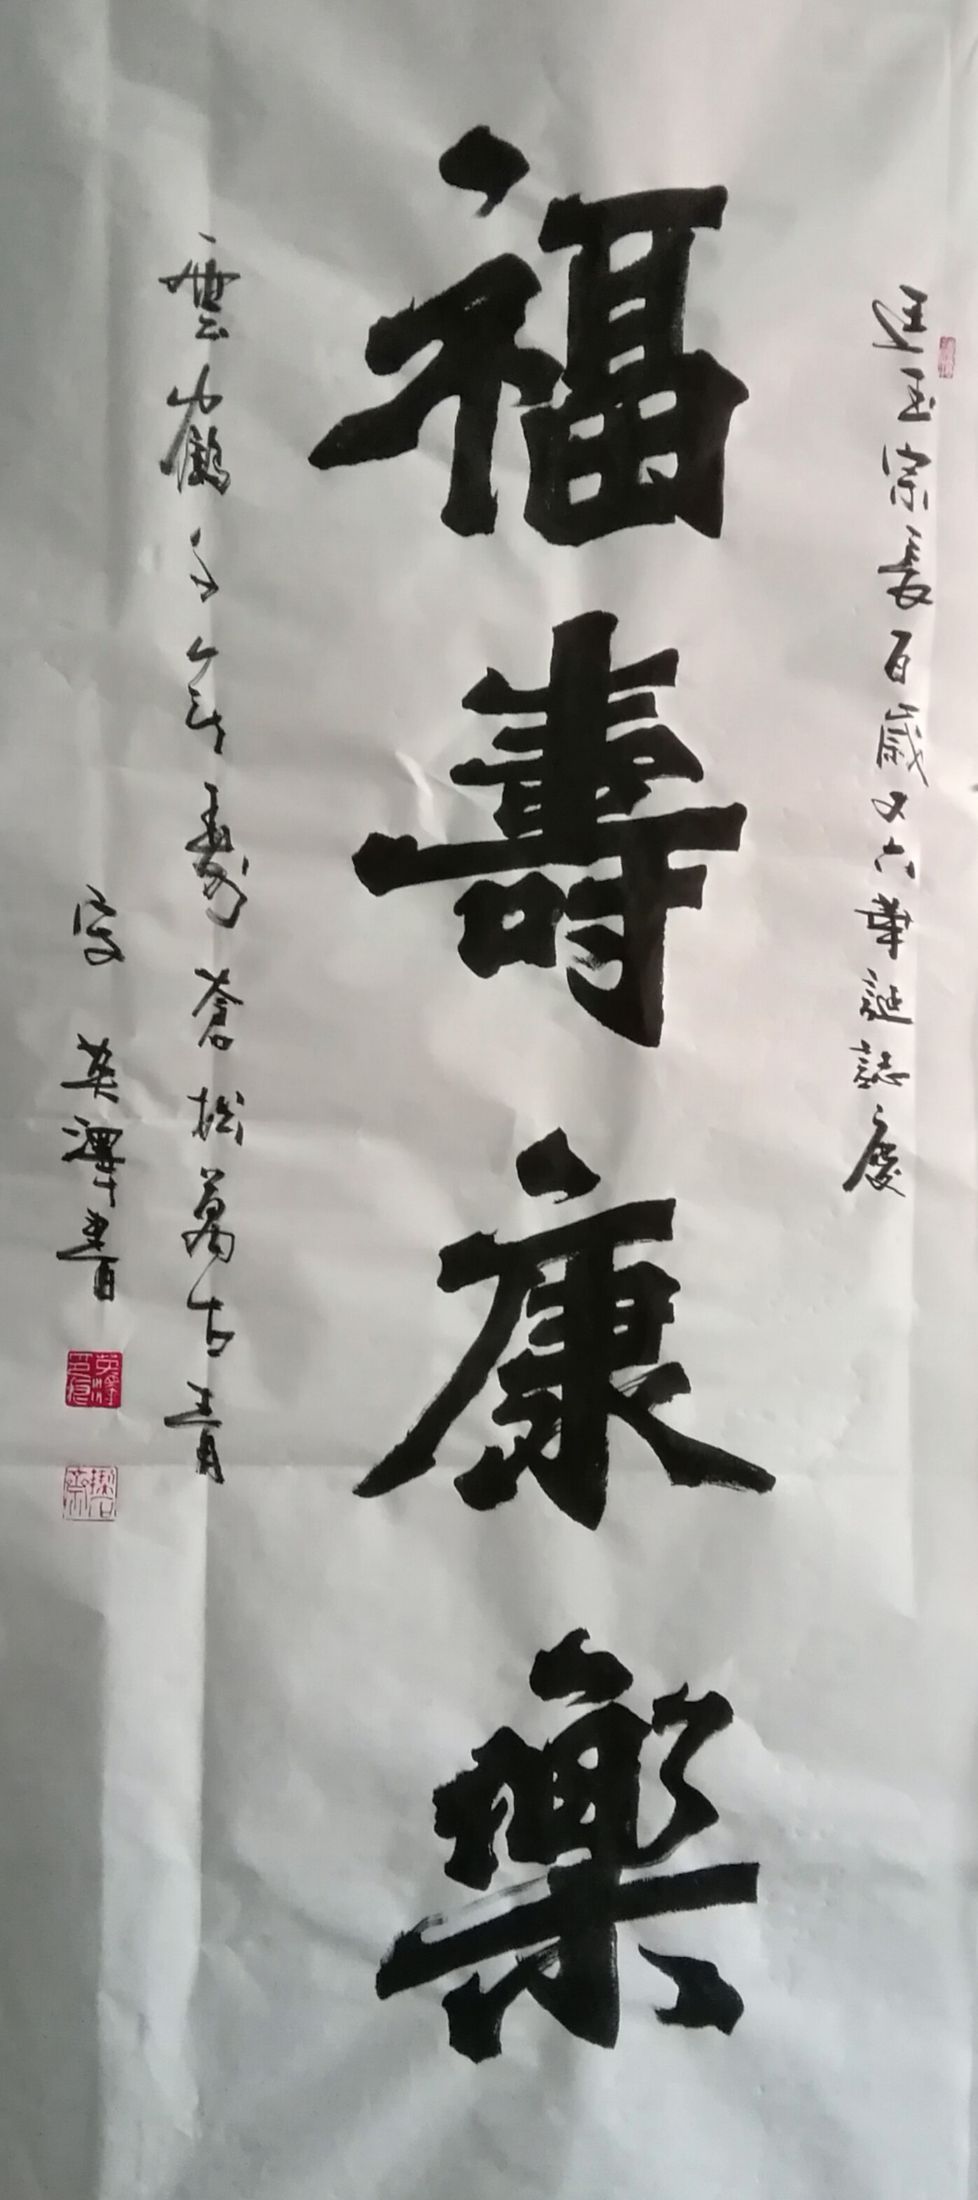 廷玉宗長百歲又六華誕誌慶
福壽康樂
雲鶴千年壽蒼松萬古青
安英澤書